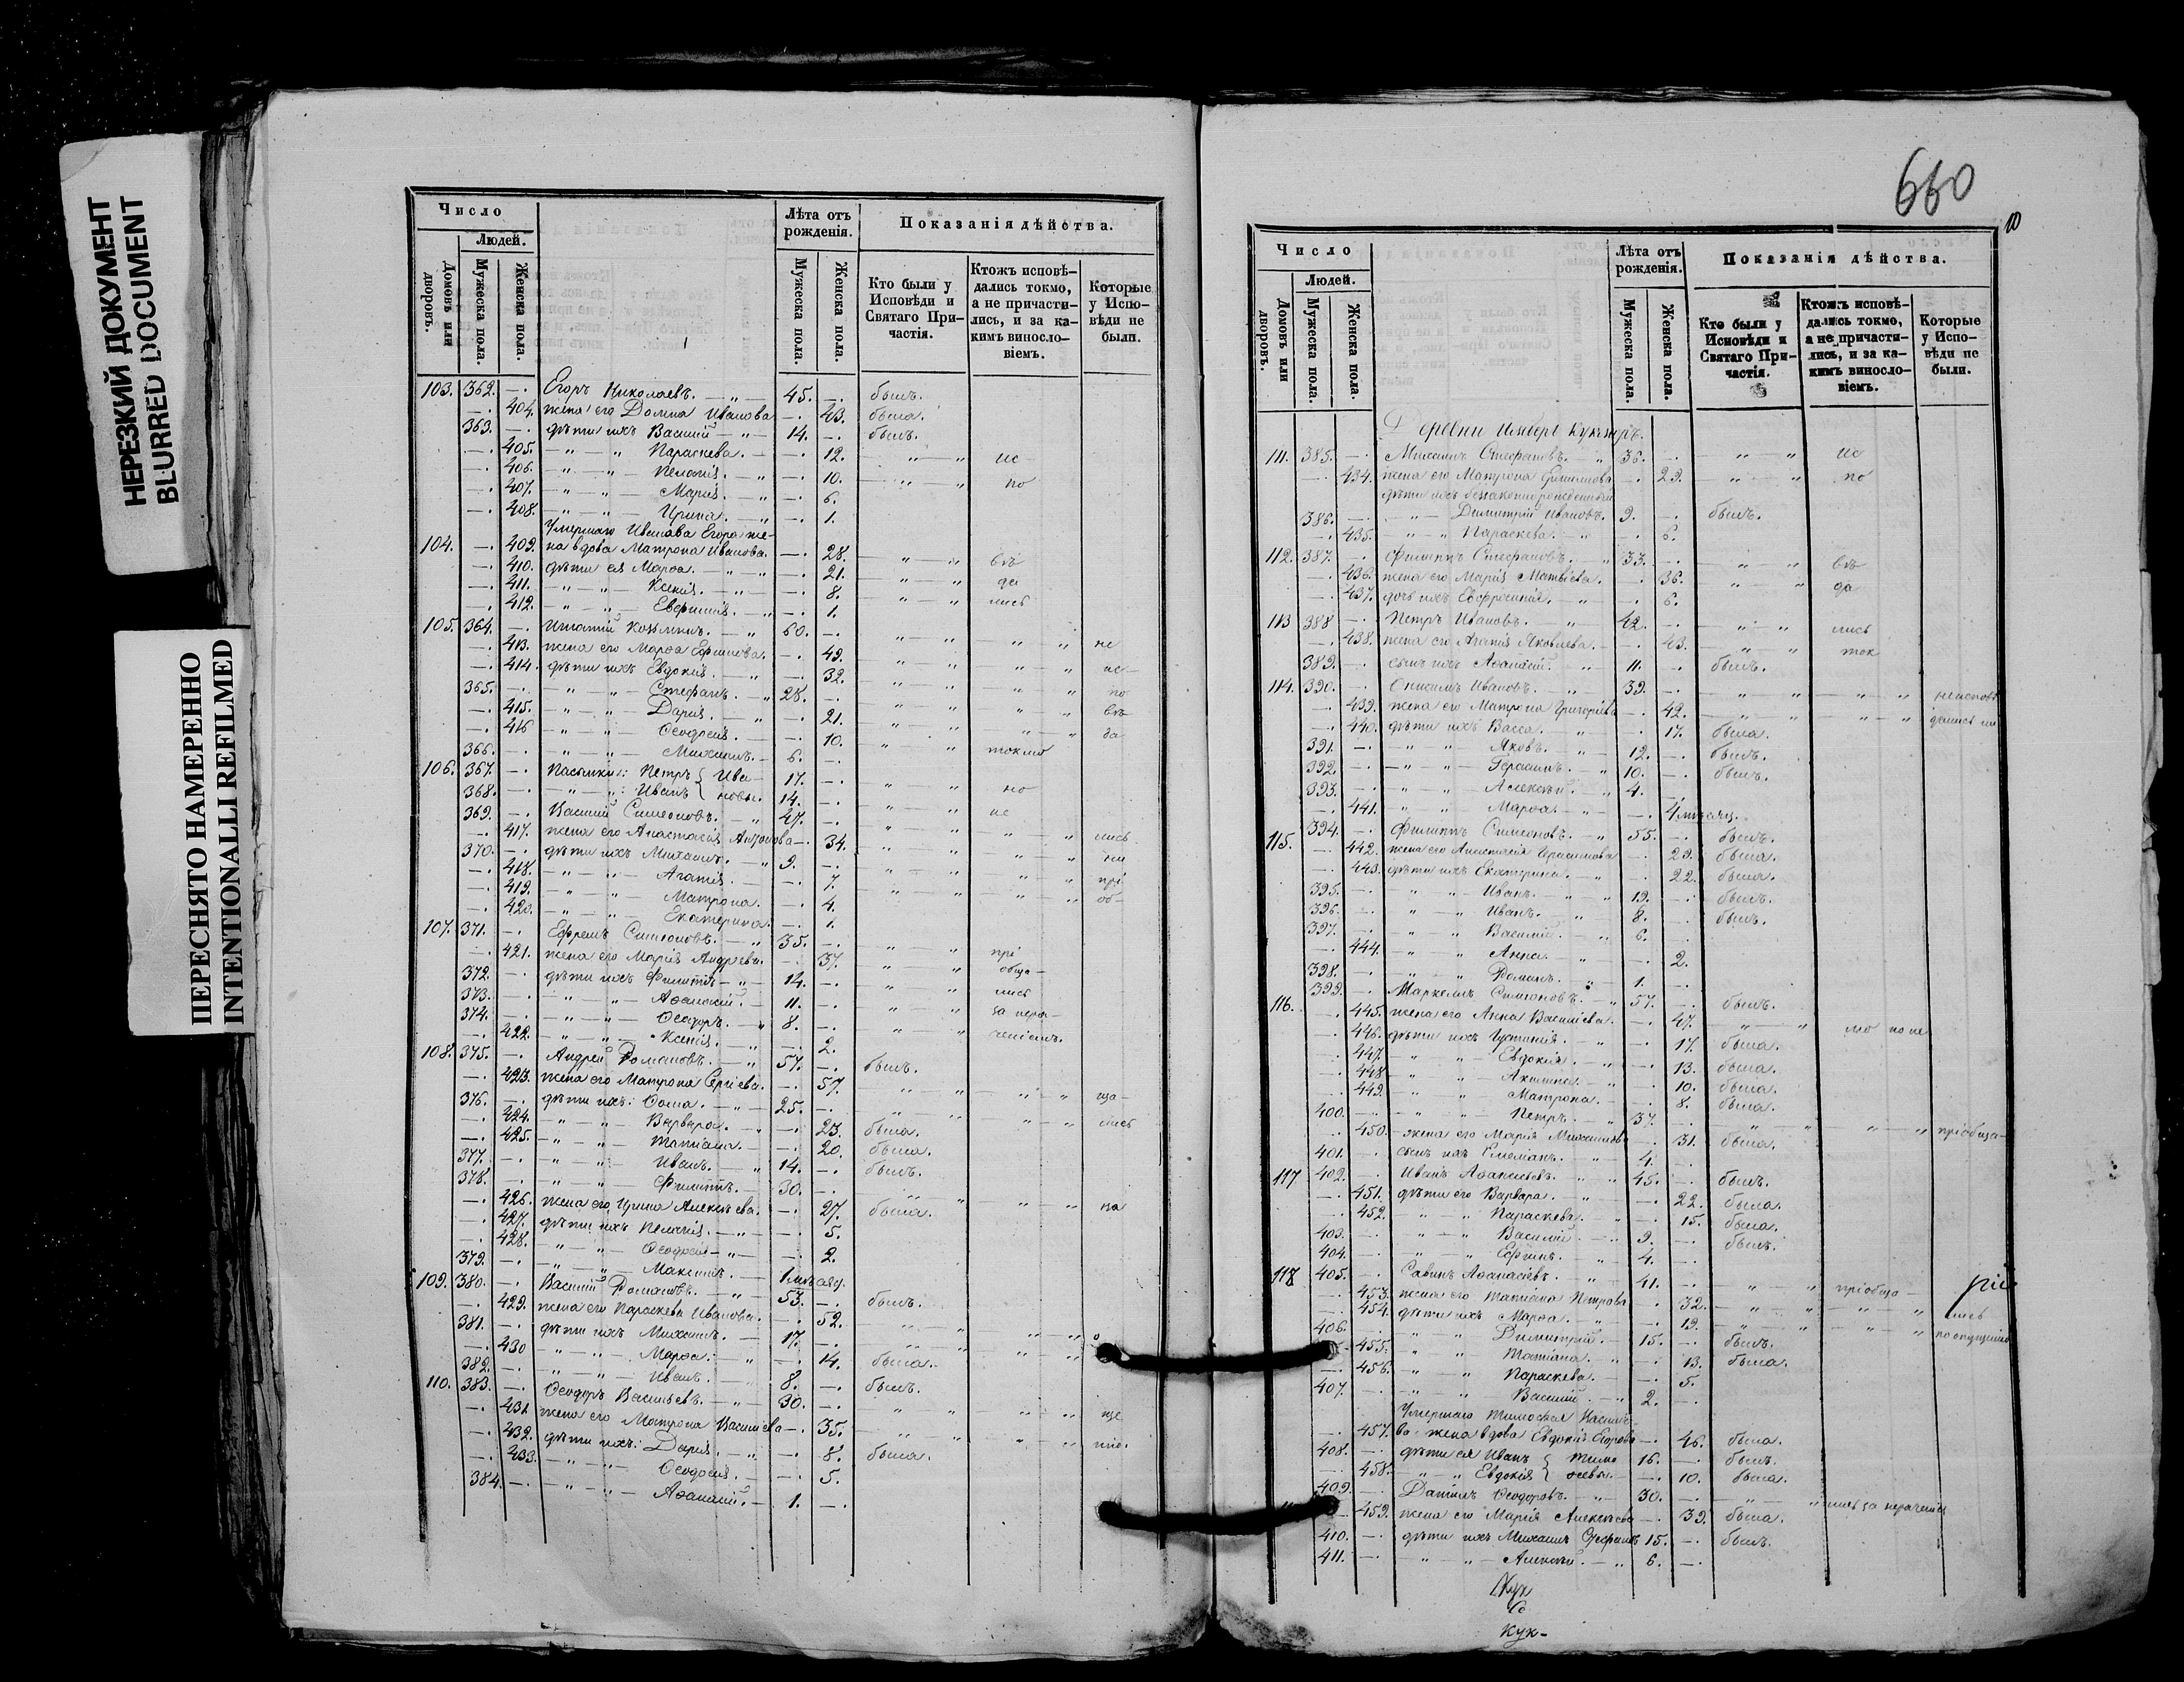 НЕРЕЗКИЙ ДОКУМЕНТ
BLURRED DOCUMENT
ПЕРЕСНЯТО НАМЕРЕННО
INTENTIONALLI REFILMED
Число
Людей.
Домовъ или дворовъ.
Мужеска пола.
Женска пола.
Лѣта отъ рожденія.
Мужеска пола.
Женска пола.
Показанія дѣйства.
Кто были у Исповѣди и Святаго Причастія.
Ктожъ исповѣ-
дались токмо,
а не причасти-
лись, и за ка-
кимъ виносло-
віемъ.
Которые
у Испо-
вѣди не
были.
103. 362. —. Егоръ Николаевъ. — „ — 45. —. былъ.
—. 404. жена его Домна Иванова —. 43. была.
363. —. дѣти ихъ Василий — „ — 14. —. былъ.
—. 405. — „ — „ Параскева. — —. 12. „ — „ ис
—. 406. — „ — „ — Пелагія. — „ —. 10. „ „ по
—. 407. — „ — „ — Марія. — „ —. 6.
—. 408. — „ — „ — Ирина. — „ —. 1.
Умершаго Ивана Егора же-
104. —. 409. на вдова Матрона Иванова. —. 28. „ — „ вѣ
—. 410. дѣти ея Марѳа. — „ — „ —. 21. „ — „ да
—. 411. — „ — „ — Ксенія. — „ —. 8. „ „ лись
—. 412. — „ — „ — Евфимія. — „ —. 1.
105. 364. —. Игнатій Козьминъ. — „ 60. —. „ — „ „ — „ не
—. 413. жена его Марѳа Ефимова. —. 49. „ — „ „ — „ ис-
—. 414. дѣти ихъ Евдокія. — „ —. 32. „ — „ „ „ по
365. —. — „ — „ — Стефанъ. — „ 28. —. „ „ „ „ вѣ
—. 415. — „ — „ — Дарія. — „ —. 21. „ — „ „ — „ да
—. 416 — „ — „ Ѳеодосія. — —. 10. „ „ токмо
366. —. — „ — „ — Михаилъ. — 6. —.
106. 367. —. Пасынки: Петръ { Ива- 17. —. „ „ но
368. —. — „ — „: Иванъ { новы. 14. —. „ „ не
369. —. Василий Симеоновъ. — „ 47. —. „ — „ „ „ лись
—. 417. жена его Анастасія Антонова —. 34. „ — „ „ — „ ни
370. —. дѣти ихъ Михаилъ. — „ 9. —. „ — „ „ — „ прі
—. 418. — „ — „ — Агапія. — —. 7. „ — „ „ — „ об-
—. 419. — „ — „ — Матрона. —. 4.
—. 420. — „ — „ Екатерина. —. 1.
107. 371. —. Ефремъ Симеоновъ. — „ 35. —. „ — „ прі
—. 421. жена его Марія Андреева. —. 37. „ — „ обща-
372. —. дѣти ихъ Филиппъ — „ — 14. —. „ „ лись
373. —. — „ — „ — Аѳанасій. — 11. —. „ „ за нера-
374. —. — „ — „ — Ѳеодоръ. — „ 8. —. „ — „ ченіемъ.
—. 422. — „ — „ — Ксенія. — „ —. 2.
108. 375. —. Андрей Романовъ. — „ 57. —. былъ.
—. 423. жена его Матрона Сергіева. —. 57. „ — „ „ — „ ща-
376. —. дѣти ихъ: Ѳома. — „ — 25. —. „ — „ „ — „ лись
—. 424. — „ — „ — Варвара. — „ —. 23. была.
—. 425. — „ — „ — Татіана. — —. 20. была.
377. —. — „ — „ — Иванъ. — „ 14. —. былъ.
378. —. — „ — „ — Филиппъ. — 30. —. „ — „ „ — „ за
—. 426. жена его Ирина Алексѣева. —. 27. была.
—. 427. дѣти ихъ Пелагія. — „ — —. 5.
—. 428. — „ — „ — Ѳеодосія — „ — —. 2.
379. —. — „ — „ — Максимъ. — 1 мѣсяц.
109. 380. —. Василий Романовъ. — „ 53. —. былъ.
—. 429. жена его Параскева Иванова. —. 52. „ — „
381. —. дѣти ихъ Михаилъ. — 17. —. „ — „
—. 430 — „ — „ — Марѳа. — „ —. 14. была.
382. —. — „ — „ — Иванъ. 8. —. былъ.
110. 383. —. Ѳеодоръ Васильевъ. — „ 30. —. „ „ „ — „
—. 431. жена его Матрона Василіева —. 35. „ — „ „ — „
—. 432. дѣти ихъ: Дарія. — „ —. 8. была.
—. 433. — „ — „ — Ѳеодосія. — —. 5.
384. —. — „ — „ — Аѳанасій. — 1. —.
660
10
Число
Людей.
Домовъ или дворовъ.
Мужеска пола.
Женска пола.
Лѣта отъ рожденія.
Мужеска пола.
Женска пола.
Показанія дѣйства.
Кто были у Исповѣди и Святаго Причастія.
Ктожъ исповѣ-
дались токмо,
а не причасти-
лись, и за ка-
кимъ виносло-
віемъ.
Которые
у Испо-
вѣди не
были.
Деревни
111. 385. —. Михаилъ Стефановъ. — „ 36. —. „ — „ ис
—. 434. жена его Матрона —. 29. „ — „ по
дѣти ихъ
386. —. — „ — Димитрій Ивановъ. 9. —. былъ.
—. 435. — „ — „ Параскева. — „ —. 6.
112. 387. —. Филиппъ Стефановъ. — „ 33. —. „ — „ вѣ
—. 436. жена его Марія Матвѣева. —. 36. „ — „ да
—. 437. дочь ихъ Евфросинія. — „ —. 6.
113 388 —. Петръ Ивановъ. — „ — 42. —. „ — „ лись
—. 438. жена его Агапія Яковлева. —. 43. „ — „ ток
389. —. сынъ ихъ Аѳанасій. „ — 11. —. былъ.
114. 390. —. Онисимъ Ивановъ. — „ — 39. —. „ „ — „ „ неисповѣ
—. 439. жена его Матрона Григоріева —. 42. „ — „ — „ „ дались ни
—. 440. дѣти ихъ Васса. — „ —. 17. была.
391. —. „ „ Яковъ. — „ — 12. —. былъ.
392. —. — „ „ — Герасимъ. — „ 10. —. былъ.
393. —. „ „ Алексѣй. — „ 4. —.
—. 441. „ „ Марѳа. — „ —. 4 мѣсяц.
115. 394. —. Филиппъ Симеоновъ. — „ 55. —. былъ.
—. 442. жена его Анастасія Герасимова —. 29. была.
—. 443. дѣти ихъ Екатерина. — „ —. 22. была.
395. —. „ „ Иванъ. — „ 19. —. былъ.
396. —. „ — „ Иванъ. „ — 8. —. былъ.
397. —. — „ „ Василій. — „ 6. —.
—. 444. „ — „ Анна. — „ — —. 2.
398. —. „ — „ Романъ. „ 1. —.
116. 399. —. Маркелъ Симеоновъ. — „ 57. —. былъ.
—. 445. жена его Анна Василіева. —. 47. „ — „ мо но не
—. 446. дѣти ихъ Іустинія. — „ —. 17. была.
—. 447. „ „ Евдокія. — „ —. 13. была.
—. 448 — „ „ Акилина. — „ —. 10. была.
—. 449. „ „ Матрона. — —. 8. была.
400. —. — „ „ Петръ. — „ 37. —. „ — „ „ — „ пріобща-
—. 450. жена его Марія Михаилова —. 31. была.
401. —. сынъ ихъ Емеліанъ. — „ 4. —.
117 402. —. Иванъ Аѳанасіевъ. — „ 45. —. былъ.
—. 451. дѣти его Варвара. — „ —. 22. была.
—. 452. — „ „ Параскева. „ —. 15. была.
403. —. „ — „ Василій. — „ 9. —. былъ.
404. —. „ — „ Ефимъ. — „ 4. —.
118 405. —. Савинъ Аѳанасіевъ. — „ 41. —. „ „ пріобща-
—. 453. жена его Татіана Петрова —. 32. „ — „ „ „ лись
—. 454. дѣти ихъ Марѳа. — „ —. 19. „ „ — „ „ по опущенію
406. —. „ „ Димитрій. — 15. —. былъ.
455. „ „ Татіана. — „ —. 13. была.
456. — „ „ Параскева. — —. 5.
407. —. — „ „ Василій. — „ 2. —.
Умершаго Тимоѳея
—. 457. ва жена вдова Евдокія Егорова —. 46. была.
408. —. дѣти ея Иванъ { Тимо 16. —. былъ.
—. 458. „ „ Евдокія { ѳеевы. —. 10. была.
409. —. Даніилъ Ѳеодоровъ. — „ 30. —. „ — „ лись за нераченіемъ
459. жена его Марія Алексѣева —. 39. была.
410. —. дѣти ихъ Михаилъ 15. —. былъ.
411. —. „ „ — Алексѣй. — „ 6. —.
Кук-